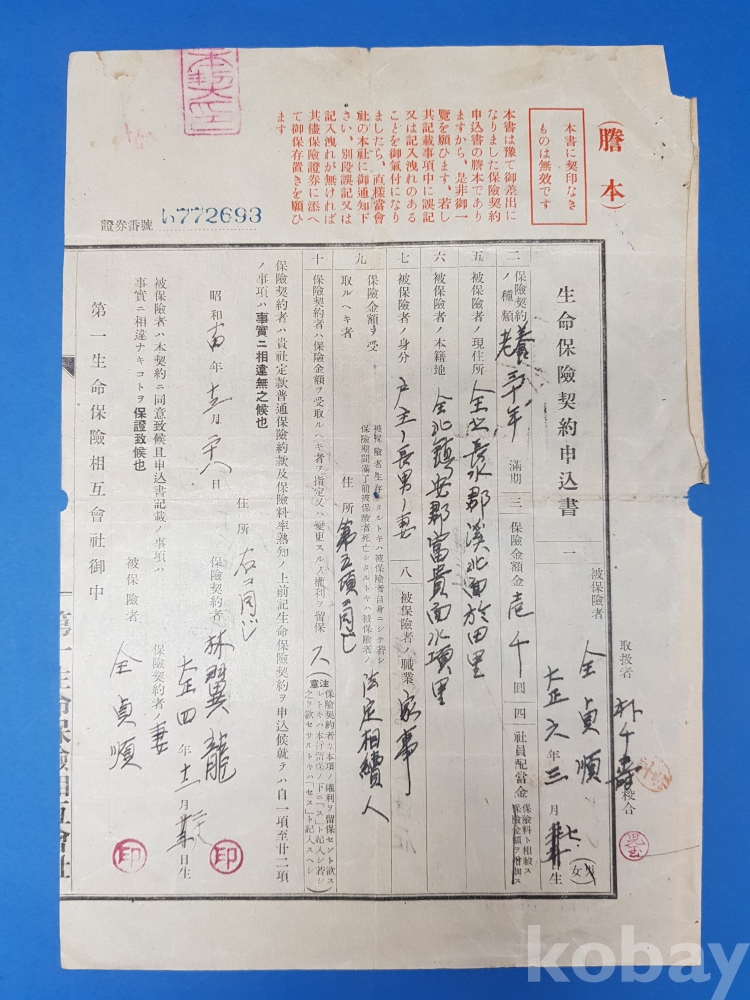 (謄本)
本書に契印なき
ものは無效です
本書は豫て御差出に
なりました保險契約
申込書の謄本であり
ますから、是非御一
覽を願ひます、若し
其記載事項中に誤記
又は記入洩れのある
ことを御氣付になり
ましたら、直樣當會
社の本社に御通知下
さい、別段誤記又は
記入洩れが無ければ
其儘保險證券に添へ
て御保存置きを願ひ
ます
證券番號 い772693
取扱者 朴千壽 校合
生命保險契約申込書
一 被保險者 全貞順 大正六年三月 日生 (女)
二 保險契約ノ種類 養老三十年 滿期 三 保險金額金 壱千圓 四 社員配當金 保險料ト相殺ス 保險金額ヲ增加ス
五 被保險者ノ現住所 全北長水郡溪北面於田里
六 被保險者ノ本籍地 全北鎭安郡富貴面水項里
七 被保險者ノ身分 戶主ノ長男ノ妻 八 被保險者ノ職業 家事
九 保險金額ヲ受取ルヘキ者
被保險者生存シタルトキハ被保險者自身ニシテ若シ
保險期間滿了前被保險者死亡シタルトキハ被保險者ノ 法定相續人
住所 第五項ニ同じ
十 保險契約者ハ保險金額ヲ受取ルヘキ者ヲ指定又ハ變更スルノ權利ヲ留保 ス
(注意 保險契約者カ本項ノ權利ヲ留保セント欲スルトキハ本行留保ノ下ニ「ス」ト記入シ若シ之ヲ欲セサルトキハ「セス」ト記入スヘシ)
保險契約者ハ貴社定款普通保險約款及保險料率熟知ノ上前記生命保險契約ヲ申込候就テハ自一項至廿二項
ノ事項ハ事實ニ相違無之候也
昭和 年 月 日
住所 右ニ同じ
保險契約者 林翼龍 印
大正四年十二月 日生
被保險者ハ本契約ニ同意致候且申込書記載ノ事項ハ
事實ニ相違ナキコトヲ保證致候也
保險契約者ノ妻
被保險者 全貞順 印
第一生命保險相互會社御中
第一生命保險相互會社
kobay